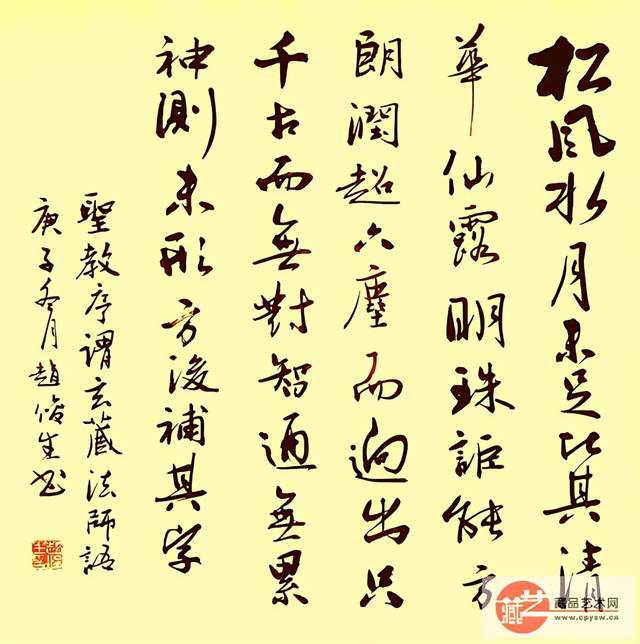 松風水月未足比其清
華仙露明珠詎能方
朗潤超六塵而迥出只
千古而無對智通無累
神測未形方後補其字
聖教序謂玄藏法師語
庚子冬月趙俊生书
藏艺
藏品艺术网
www.cpysw.cn